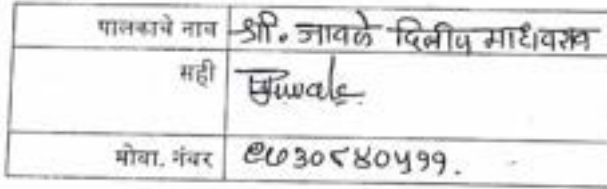 पालकाचे नाव श्री. जावळे दिलीप माधवराव
सही Jiwale
मोबा. नंबर ९७३०८४०५११.